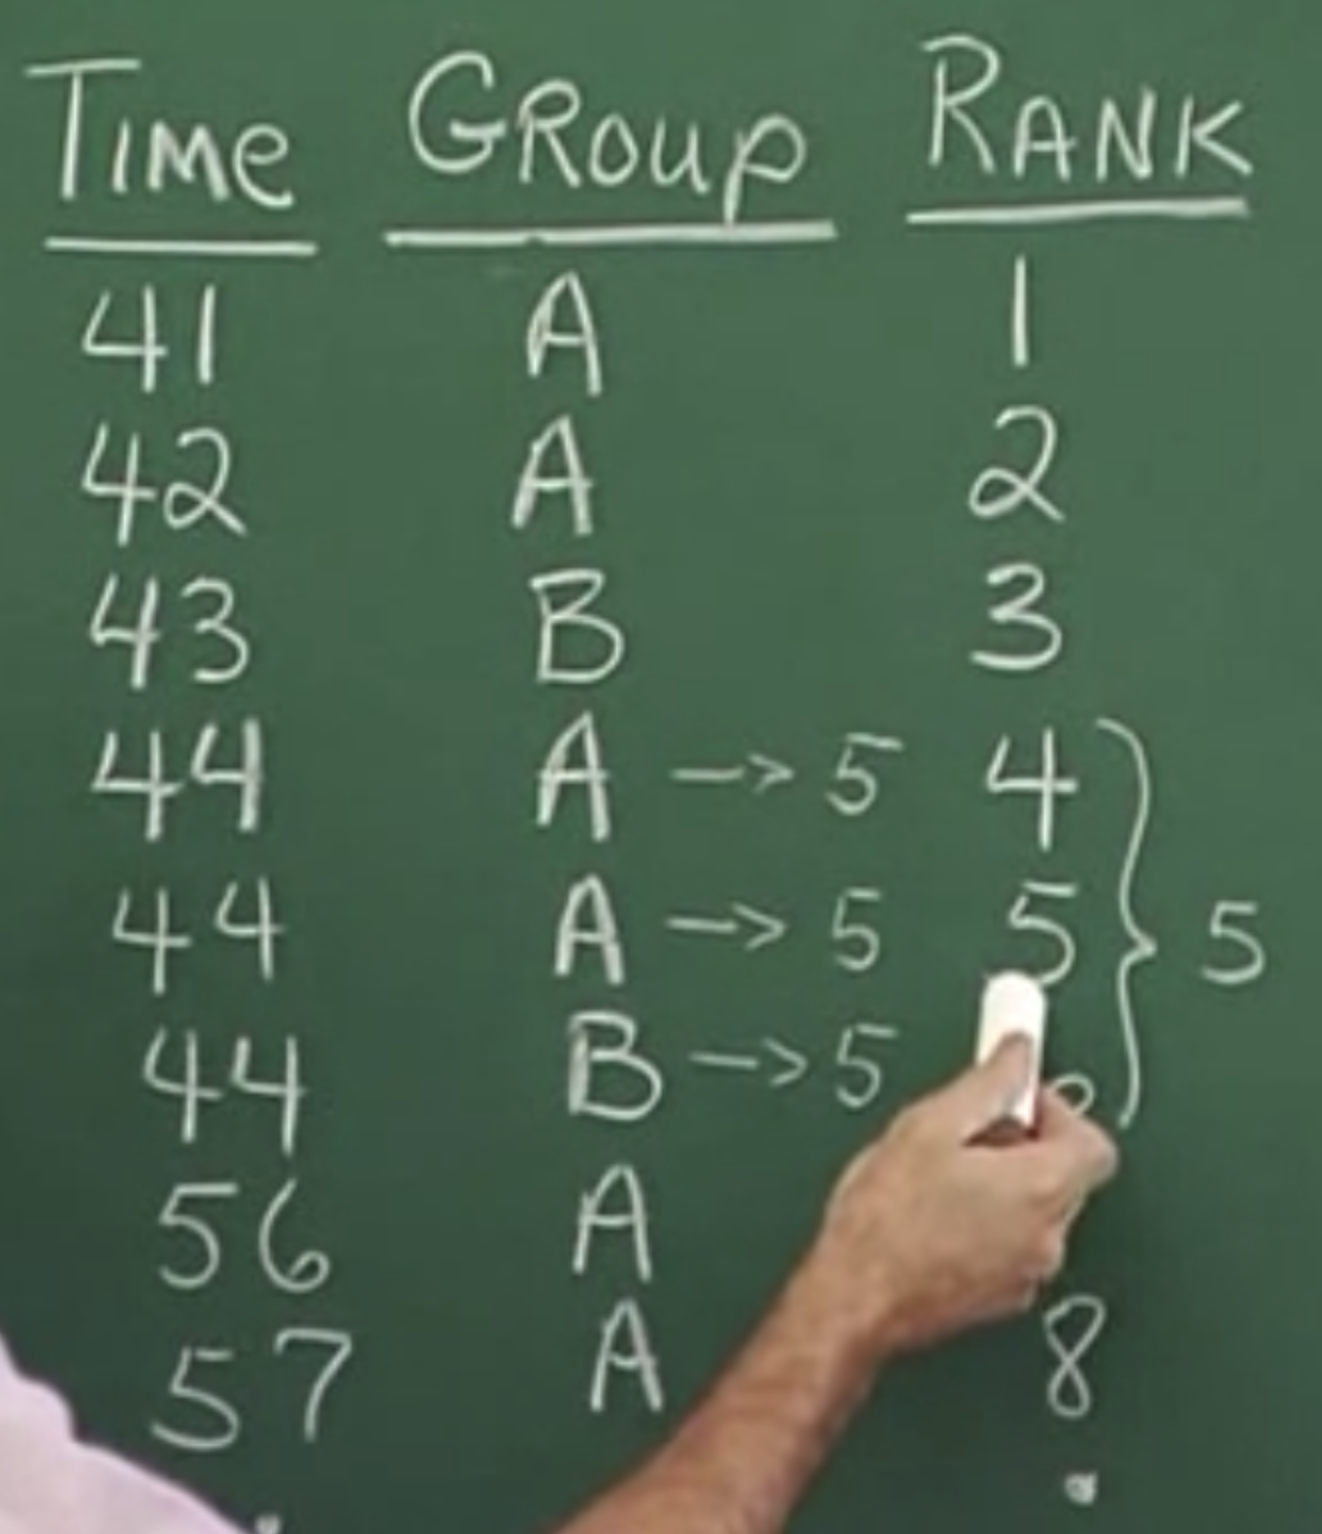 Time Group Rank
41 A 1
42 A 2
43 B 3
44 A -> 5 4
44 A -> 5 5 } 5
44 B -> 5
56 A
57 A 8